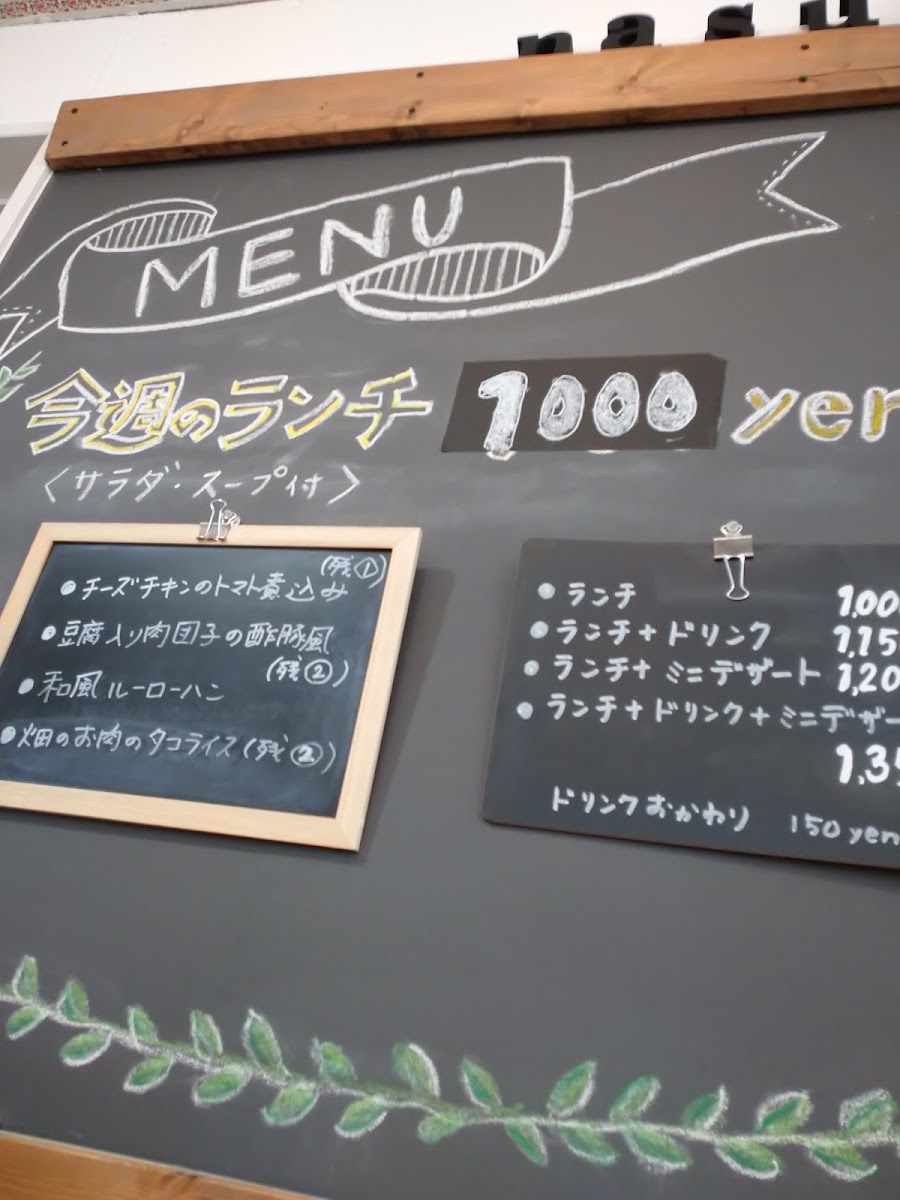 nasu
MENU
今週のランチ 1000 yen
〈サラダ・スープ付〉
(残①)
• チーズチキンのトマト煮込み
• 豆腐入り肉団子の酢豚風
(残②)
• 和風ルーローハン
• 畑のお肉のタコライス(残②)
• ランチ 1,00
• ランチ+ドリンク 1,15
• ランチ+ミニデザート 1,20
• ランチ+ドリンク+ミニデザー
1,35
ドリンクおかわり 150 yen